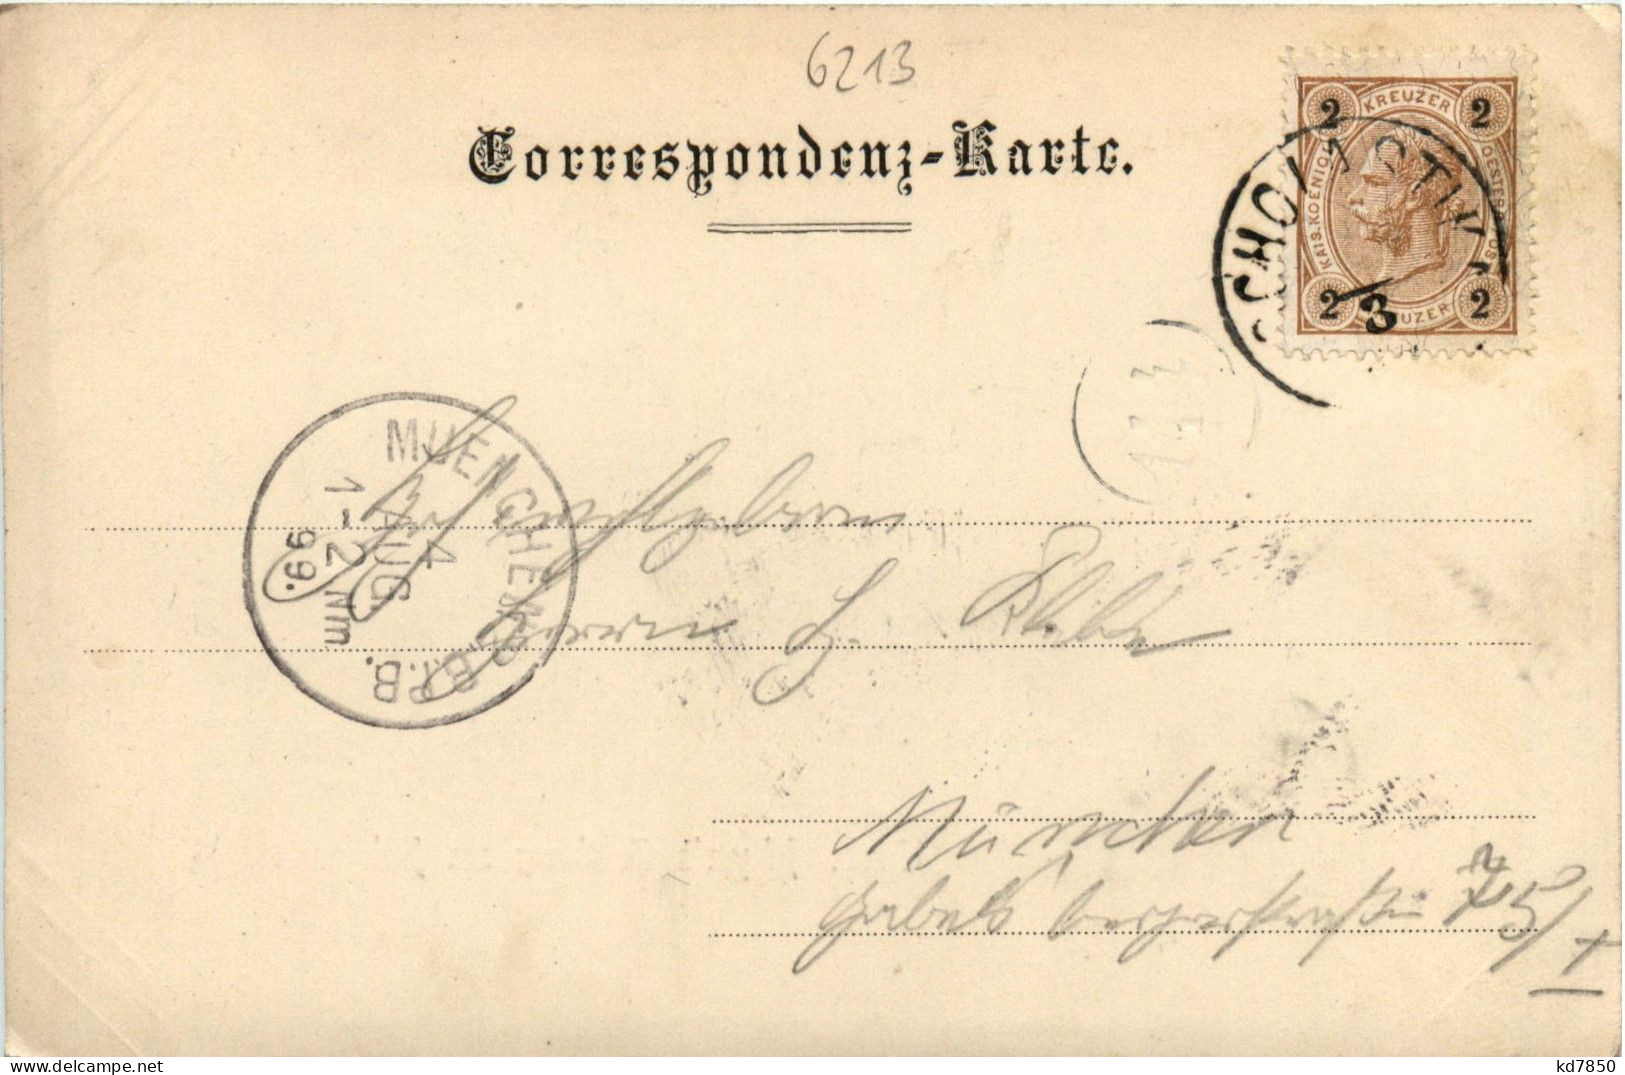 6213
Correspondenz-Karte.
2 KREUZER 2
KAIS. KOENIGL. OESTERR. POST
2 KREUZER 2
SCHOLASTIKA
3
MUENCHEN
4 AUG
1-2 Nm
99.
B.P.B.
Herrn
München
Gabelsbergerstraße 75/I
kd7850